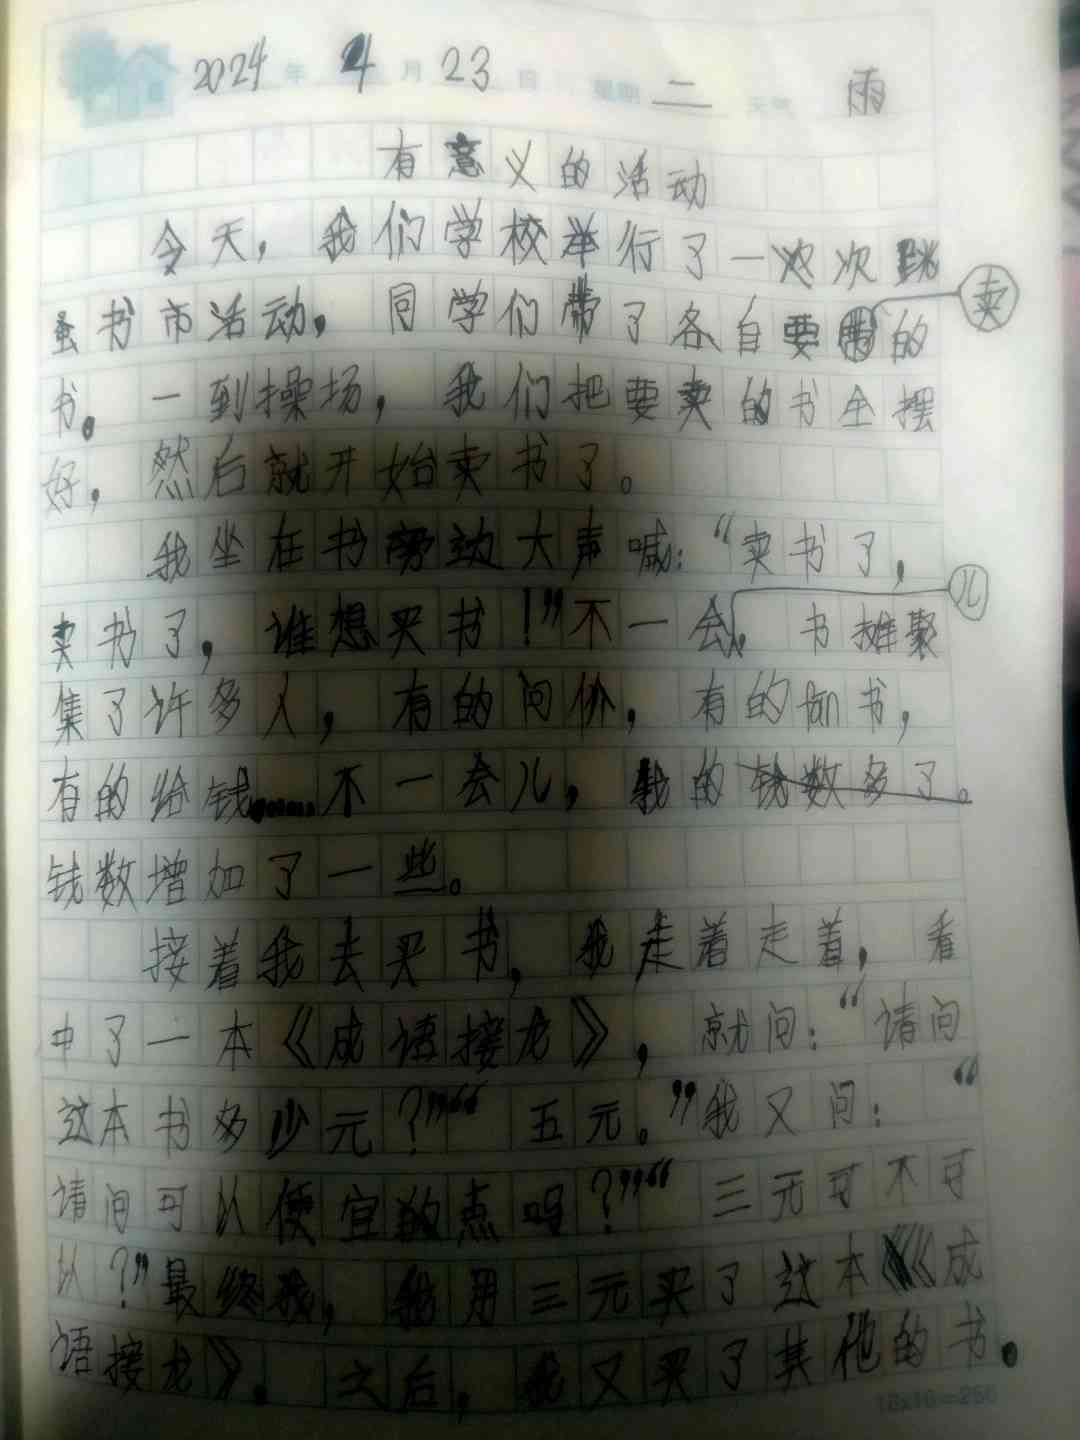 2024年4月23日 星期二 天气 雨
有意义的活动
今天，我们学校举行了一次跳
蚤书市活动，同学们带了各自要卖的
书。一到操场，我们把要卖的书全摆
好，然后就开始卖书了。
我坐在书旁边大声喊：“卖书了，
卖书了，谁想买书！”不一会儿，书摊聚
集了许多人，有的问价，有的fan书，
有的给钱……不一会儿，我的
钱数增加了一些。
接着我去买书，我走着走着，看
中了一本《成语接龙》，就问：“请问
这本书多少元？”“五元。”我又问：“
请问可以便宜的点吗？”“三元可不可
以？”最终我，我用三元买了这本《成
语接龙》。之后，我又买了其他的书。
18x16=288